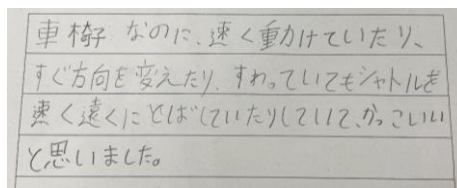 車椅子なのに、速く動けていたり、
すぐ方向を変えたり、すわっていてもシャトルを
速く遠くにとばしていたりしていて、かっこいい
と思いました。